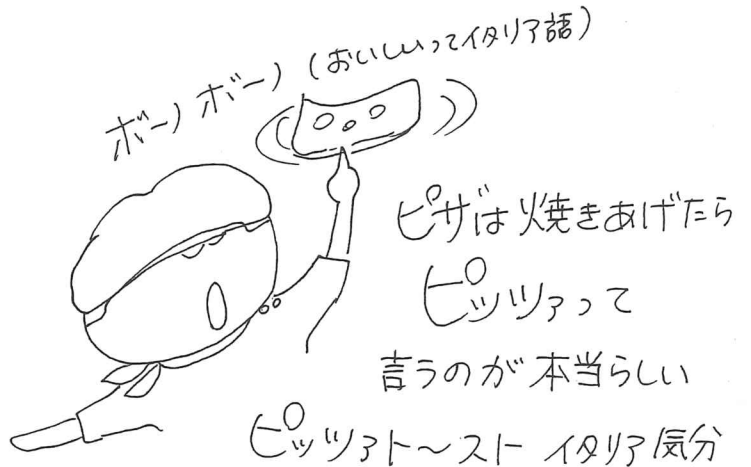 ボーノ ボーノ (おいしいってイタリア語)
ピザは焼きあげたら
ピッツァって
言うのが本当らしい
ピッツァト〜スト イタリア気分